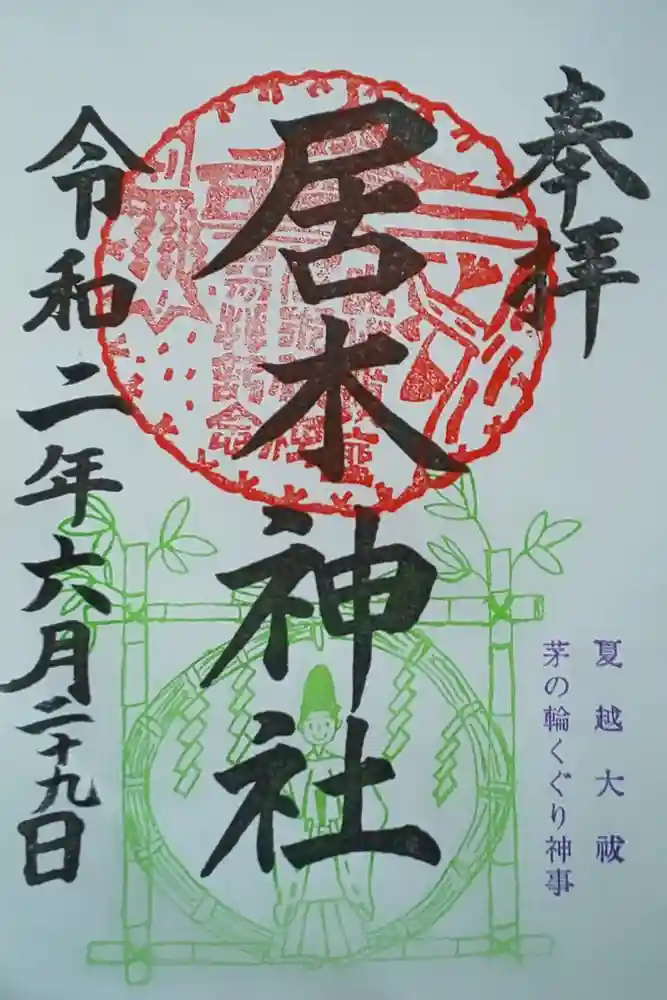 奉拝
居木神社
令和二年六月二十九日
夏越大祓
茅の輪くぐり神事